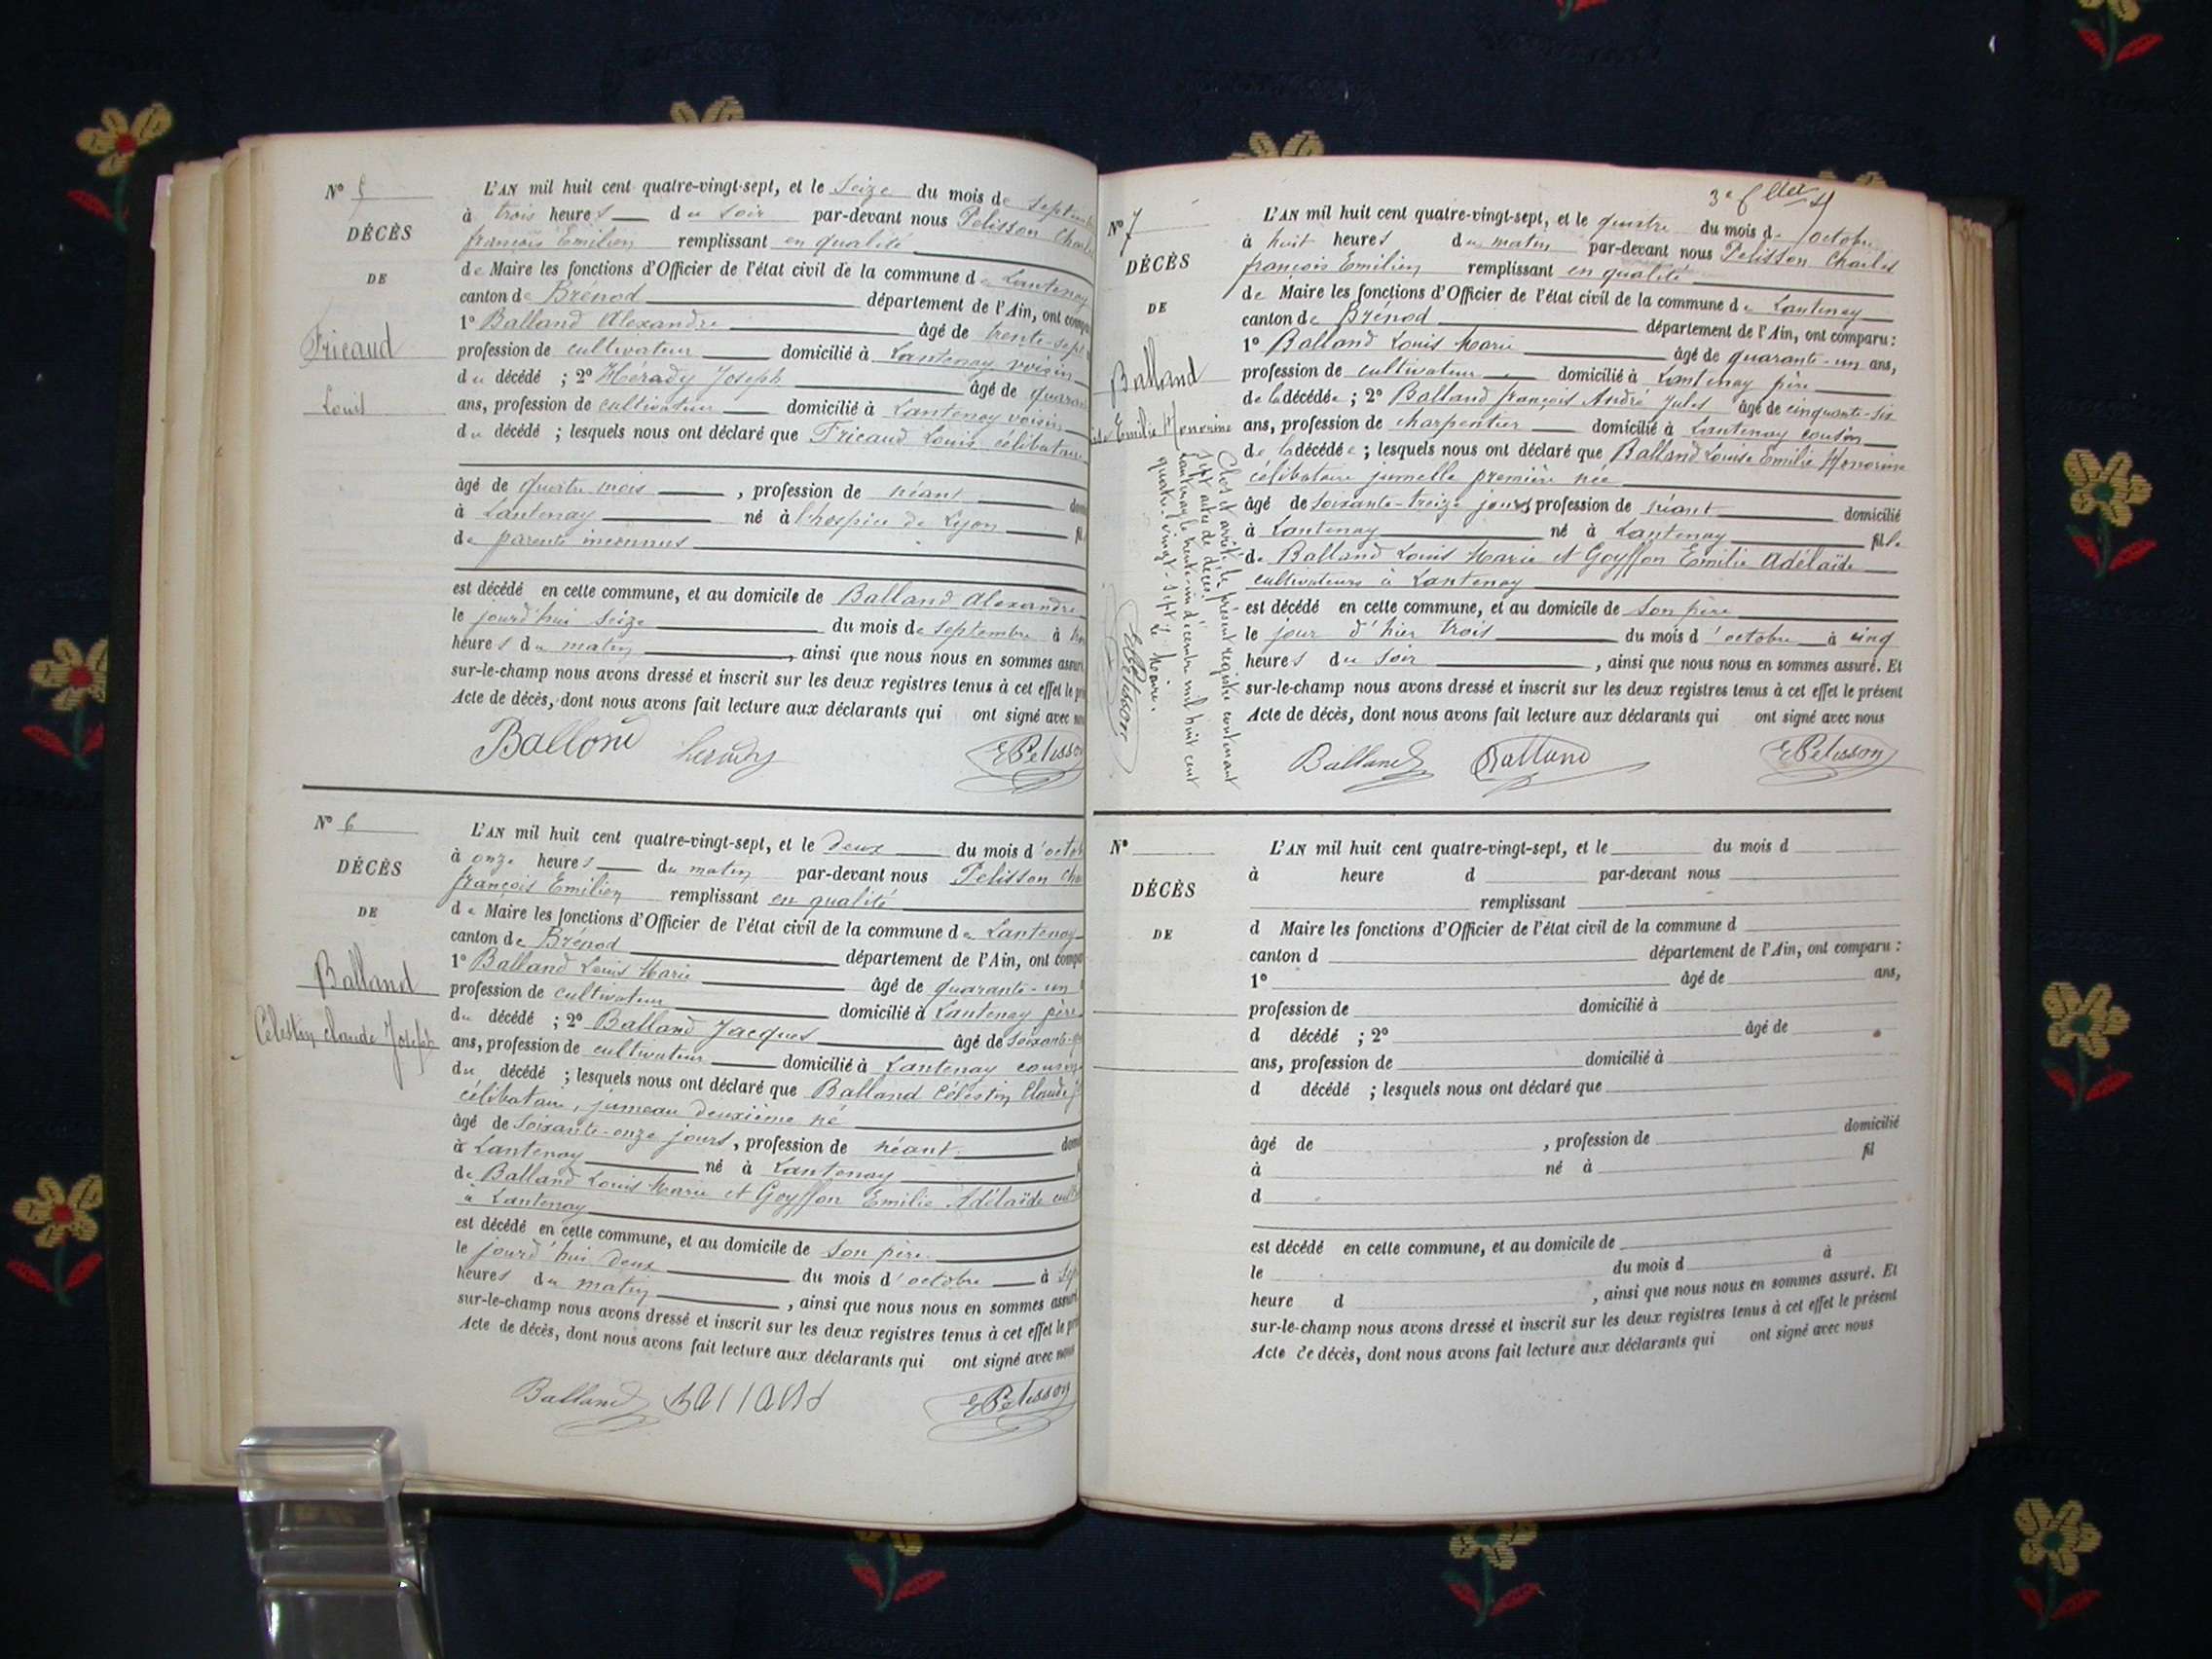 N° 5
DÉCÈS
DE
Fricaud
Louis
L'AN mil huit cent quatre-vingt-sept, et le seize du mois de septem
à trois heures du soir par-devant nous Pelisson Charles
françois Emilien remplissant en qualité
de Maire les fonctions d'Officier de l'état civil de la commune de Lantenay
canton de Brénod département de l'Ain, ont compa
1° Balland Alexandre âgé de trente-sept
profession de cultivateur domicilié à Lantenay voisin
du décédé ; 2° Hérady Joseph âgé de quaran
ans, profession de cultivateur domicilié à Lantenay voisin
du décédé ; lesquels nous ont déclaré que Fricaud Louis célibataire
âgé de quatre mois , profession de néant dom
à Lantenay né à l'hospice de Lyon fil
de parents inconnus
est décédé en cette commune, et au domicile de Balland Alexandre
le jourd'hui seize du mois de septembre à
heures du matin , ainsi que nous nous en sommes assuré
sur-le-champ nous avons dressé et inscrit sur les deux registres tenus à cet effet le pr
Acte de décès, dont nous avons fait lecture aux déclarants qui ont signé avec nous
Balland herady E Pelisson
N° 6
DÉCÈS
DE
Balland
Célestin claude Joseph
L'AN mil huit cent quatre-vingt-sept, et le deux du mois d'octob
à onze heures du matin par-devant nous Pelisson Cha
françois Emilien remplissant en qualité
de Maire les fonctions d'Officier de l'état civil de la commune de Lantenay
canton de Brénod département de l'Ain, ont compa
1° Balland Louis Marie âgé de quarante-un
profession de cultivateur domicilié à Lantenay père
du décédé ; 2° Balland Jacques âgé de soixante-
ans, profession de cultivateur domicilié à Lantenay cousin
du décédé ; lesquels nous ont déclaré que Balland Célestin Claude J
célibataire, jumeau deuxième né
âgé de soixante-onze jours , profession de néant dom
à Lantenay né à Lantenay
de Balland Louis Marie et Goyffon Emilie Adélaïde cult
à Lantenay
est décédé en cette commune, et au domicile de son père
le jourd'hui deux du mois d'octobre à sep
heures du matin , ainsi que nous nous en sommes assuré
sur-le-champ nous avons dressé et inscrit sur les deux registres tenus à cet effet le pré
Acte de décès, dont nous avons fait lecture aux déclarants qui ont signé avec nous
Balland Balland E Pelisson
3e
N° 7
DÉCÈS
DE
Balland
Emilie Honorine
Clos et arrêté le présent registre contenant
sept actes de décès
Lantenay le trente-un décembre mil huit cent
quatre-vingt-sept Le Maire.
E Pelisson
L'AN mil huit cent quatre-vingt-sept, et le quatre du mois d'octobre
à huit heures du matin par-devant nous Pelisson Charles
françois Emilien remplissant en qualité
de Maire les fonctions d'Officier de l'état civil de la commune de Lantenay
canton de Brénod département de l'Ain, ont comparu :
1° Balland Louis Marie âgé de quarante-un ans,
profession de cultivateur domicilié à Lantenay père
de la décédée ; 2° Balland françois André Jules âgé de cinquante-six
ans, profession de charpentier domicilié à Lantenay cousin
de la décédée ; lesquels nous ont déclaré que Balland Louise Emilie Honorine
célibataire jumelle première née
âgé de soixante-treize jours, profession de néant domicilié
à Lantenay né à Lantenay fille
de Balland Louis Marie et Goyffon Emilie Adélaïde
cultivateurs à Lantenay
est décédé en cette commune, et au domicile de son père
le jour d'hier trois du mois d'octobre à cinq
heures du soir , ainsi que nous nous en sommes assuré. Et
sur-le-champ nous avons dressé et inscrit sur les deux registres tenus à cet effet le présent
Acte de décès, dont nous avons fait lecture aux déclarants qui ont signé avec nous
Balland Balland E Pelisson
N°
DÉCÈS
DE
L'AN mil huit cent quatre-vingt-sept, et le du mois d
à heure d par-devant nous
remplissant
d Maire les fonctions d'Officier de l'état civil de la commune d
canton d département de l'Ain, ont comparu :
1° âgé de ans,
profession de domicilié à
d décédé ; 2° âgé de
ans, profession de domicilié à
d décédé ; lesquels nous ont déclaré que
âgé de , profession de domicilié
à né à fil
d
est décédé en cette commune, et au domicile de
le du mois d à
heure d , ainsi que nous nous en sommes assuré. Et
sur-le-champ nous avons dressé et inscrit sur les deux registres tenus à cet effet le présent
Acte de décès, dont nous avons fait lecture aux déclarants qui ont signé avec nous